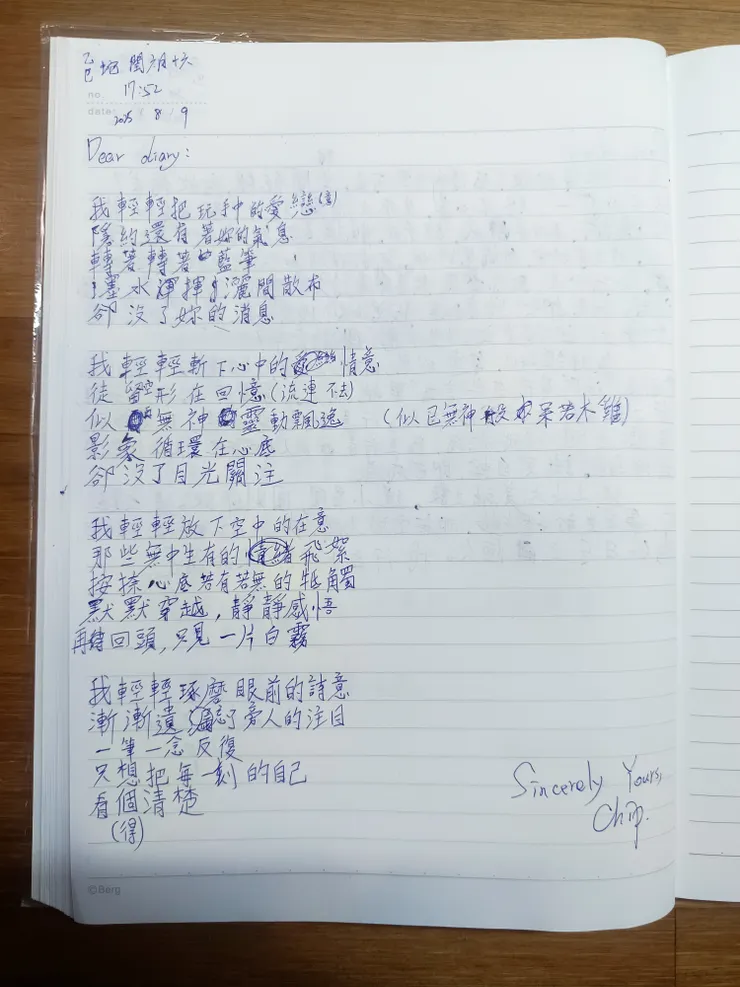 乙巳蛇 閏六月十六
no. 17:52
date: 2025 8 9
Dear diary:
我輕輕把玩手中的愛戀(意)
隱約還有著妳的氣息
轉著轉著藍筆
墨水渾揮灑間散布
卻沒了妳的消息
我輕輕斬下心中的情意
徒留空形在回憶(流連不去)
似無神的靈動飄逸 (似已無神般如呆若木雞)
影象循環在心底
卻沒了目光關注
我輕輕放下空中的在意
那些無中生有的情緒飛絮
按捺心底若有若無的牴觸
默默穿越,靜靜感悟
再待回頭,只見一片白霧
我輕輕琢磨眼前的詩意
漸漸遺忘了旁人的注目
一筆一念反復
只想把每一刻的自己
看個清楚
(得)
Sincerely Yours,
Chip.
©Berg